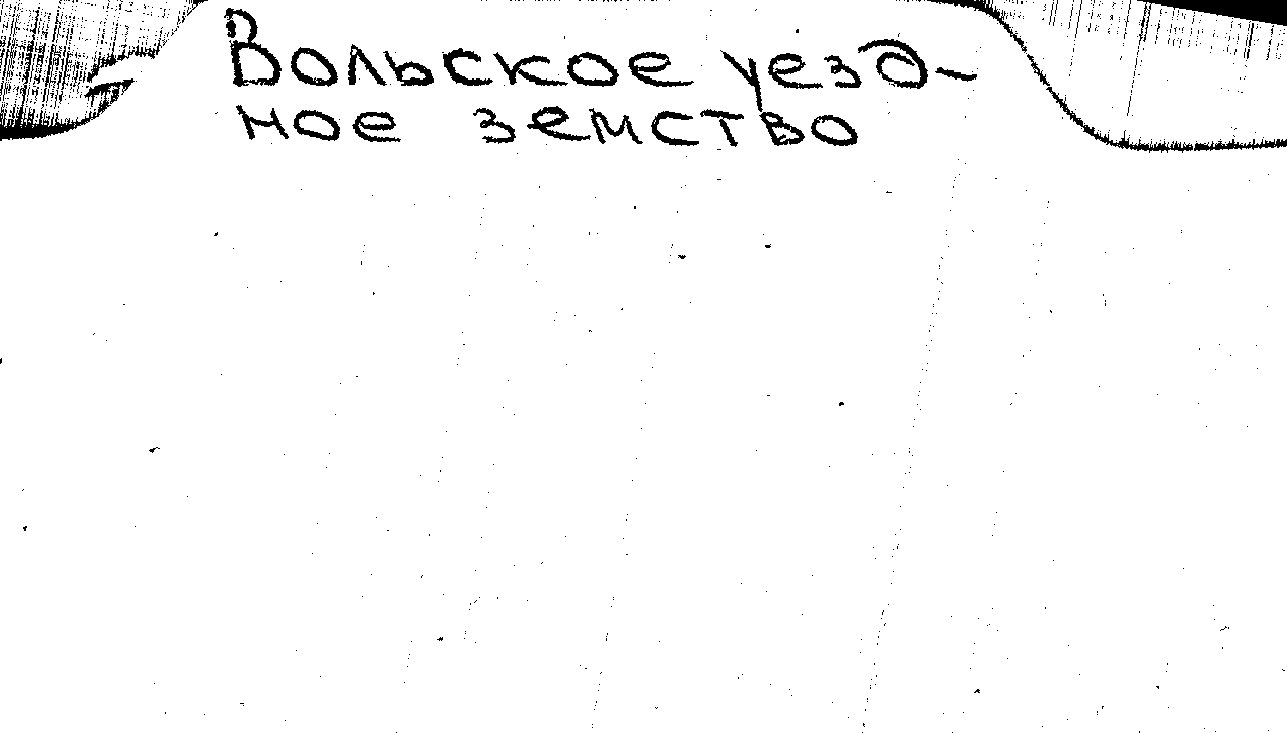 Вольское уезд-
ное земство